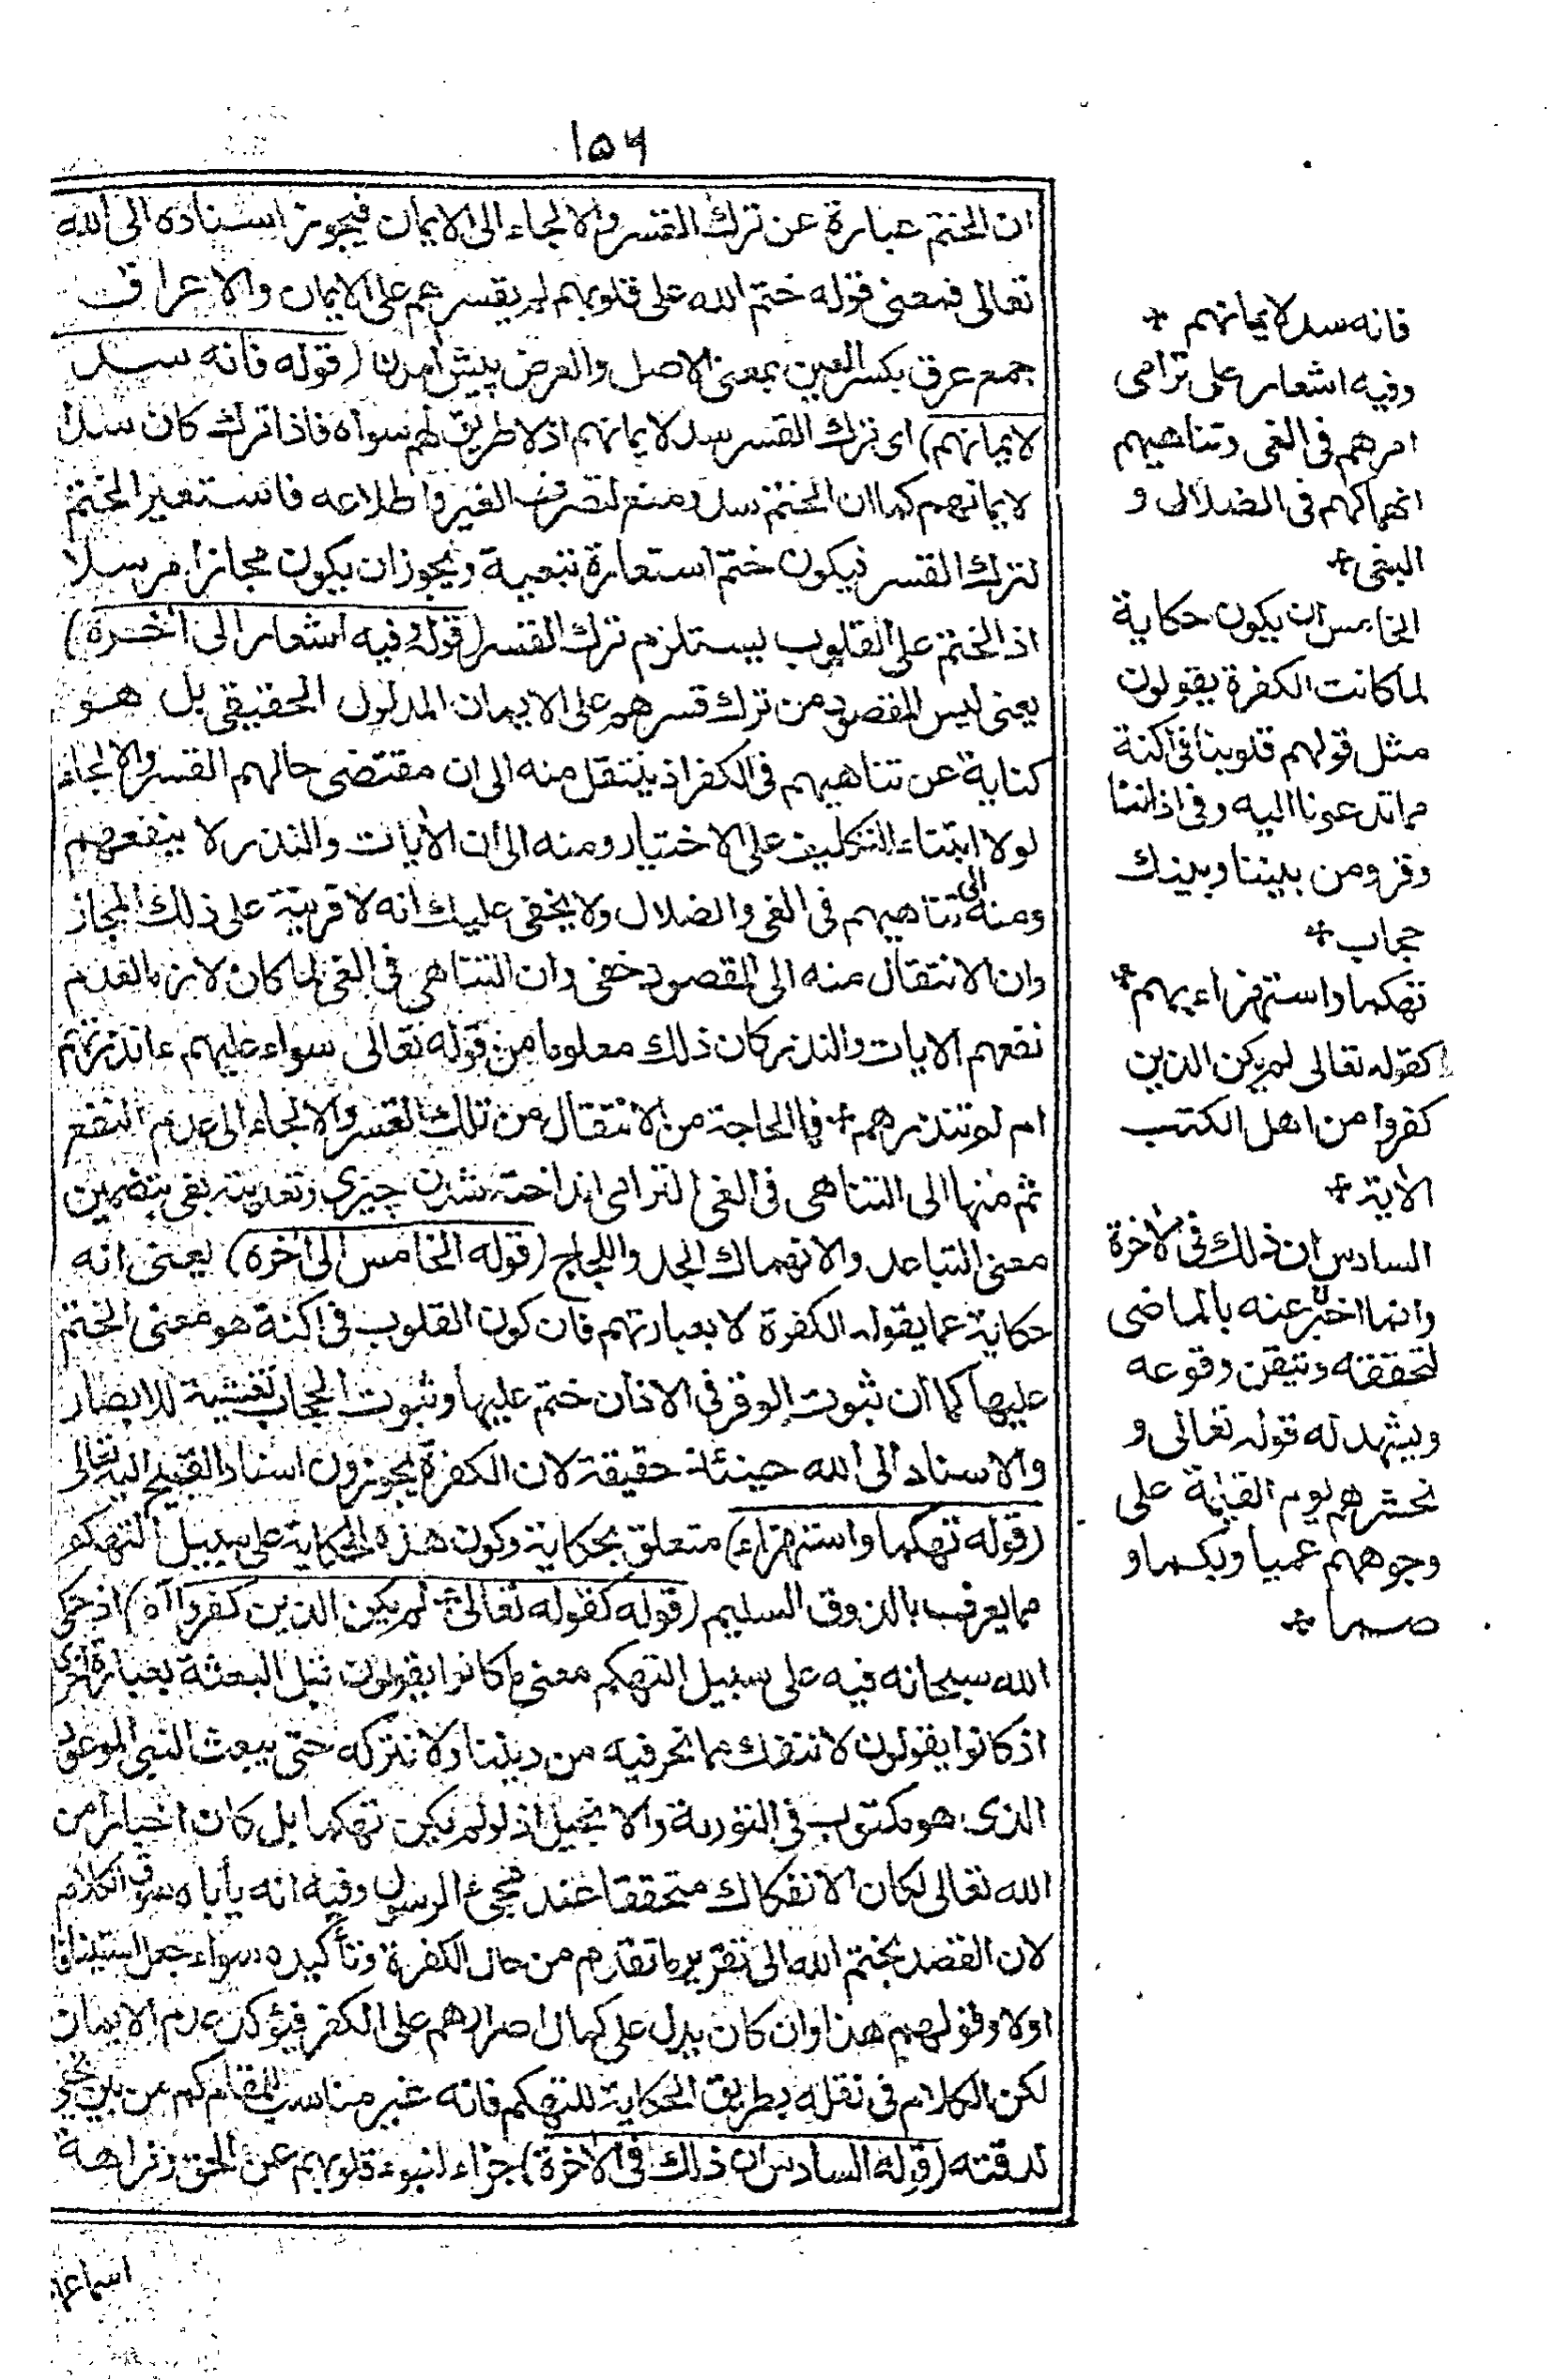 ۱۵۶
ان الختم عبارة عن ترك القسر والالجاء الى الايمان فيجوز اسناده الى الله
تعالى فمعنى قوله ختم الله على قلوبهم لم يقسرهم على الايمان والاعراق
جمع عرق بكسر العين بمعنى الاصل والعرض پیش آمدن (قوله فانه سد
لايمانهم) اى ترك القسر سد لايمانهم اذ لا طريق لهم سواه فاذا ترك كان سدا
لايمانهم كما ان الختم سد ومنع لتصرف الغير واطلاعه فاستعير الختم
لترك القسر فيكون ختم استعارة تبعية ويجوز ان يكون مجازا مرسلا
اذ الختم على القلوب يستلزم ترك القسر (قوله وفيه اشعار الى اخره)
يعنى ليس المقصود من ترك قسرهم على الايمان المدلول الحقيقى بل هو
كناية عن تناهيهم فى الكفر اذ ينتقل منه الى ان مقتضى حالهم القسر والالجاء
لولا ابتناء التكليف على الاختيار ومنه الى ان الأيات والنذر لا ينفعهم
ومنه الى تناهيهم فى الغى والضلال ولا يخفى عليك انه لا قرينة على ذلك المجاز
وان الانتقال منه الى المقصود خفى وان التناهى فى الغى لما كان لازما لعدم
نفعهم الايات والنذر كان ذلك معلوما من قوله تعالى سواء عليهم ءانذرتهم
ام لم تنذرهم + فما الحاجة من الانتقال من تلك القسر والالجاء الى عدم النفع
ثم منها الى التناهى فى الغى الترامى انداخته شدن چیزی وتعديته بفى بتضمين
معنى التباعد والانهماك الجد واللجاج (قوله الخامس الى اخره) يعنى انه
حكاية عما يقوله الكفرة لا بعبارتهم فان كون القلوب فى اكنة هو معنى الختم
عليها كما ان ثبوت الوقر فى الاذان ختم عليها وثبوت الحجاب تغشية للابصار
والاسناد الى الله حينئذ حقيقة لان الكفرة يجوزون اسناد القبيح اليه تعالى
(قوله تهكما واستهزاء) متعلق بحكاية وكون هذه الحكاية على سبيل التهكم
مما يعرف بالذوق السليم (قوله كقوله تعالى لم يكن الذين كفروا آه) اذ حكى
الله سبحانه فيه على سبيل التهكم معنى ما كانوا يقولون قبل البعثة بعبارة اخرى
اذ كانوا يقولون لا ننفك مما نحن فيه من ديننا ولا نتركه حتى يبعث النبى الموعود
الذى هو مكتوب فى التورية والانجيل اذ لو لم يكن تهكما بل كان اخبارا من
الله تعالى لكان الانفكاك متحققا عند مجئ الرسول وفيه انه يأباه سوق الكلام
لان القصد بختم الله الى تقرير ما تقدم من حال الكفرة وتأكيده سواء جعل استينافا
اولا وقولهم هذا وان كان يدل على كمال اصرارهم على الكفر فيؤكد عدم الايمان
لكن الكلام فى نقله بطريق الحكاية للتهكم فانه غير مناسب للمقام كم من
لدقته (قوله السادس ان ذلك فى الاخرة) جزاء لنبوء قلوبهم عن الحق وكراهة
فانه سد لايمانهم +
وفيه اشعار على ترامى
امرهم فى الغى وتناهيهم
انهماكهم فى الضلال و
البغى +
الخامس ان يكون حكاية
لما كانت الكفرة يقولون
مثل قولهم قلوبنا فى اكنة
مما تدعونا اليه وفى اذاننا
وقر ومن بيننا وبينك
حجاب +
تهكما واستهزاء بهم +
كقوله تعالى لم يكن الذين
كفروا من اهل الكتب
الاية +
السادس ان ذلك فى الاخرة
وانما اخبر عنه بالماضى
لتحققه وتيقن وقوعه
ويشهد له قوله تعالى و
نحشرهم يوم القيمة على
وجوههم عميا وبكما و
صما +